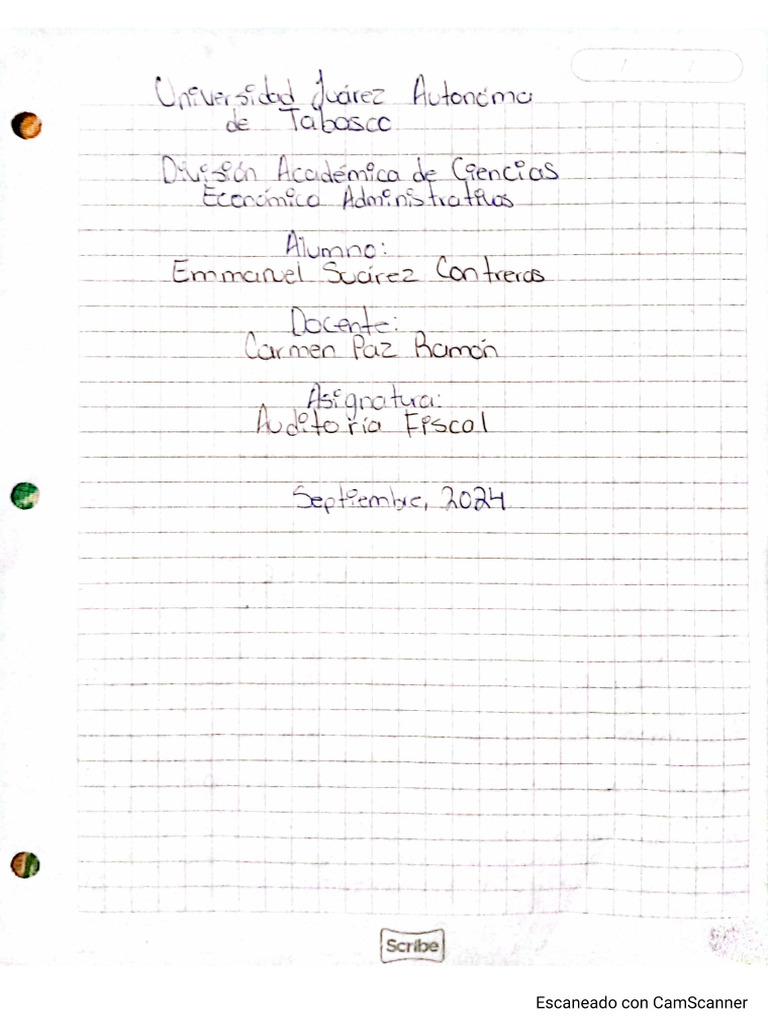 Universidad Juárez Autonóma
de Tabasco
División Académica de Ciencias
Económico Administrativas
Alumno:
Emmanuel Suárez Contreras
Docente:
Carmen Paz Ramón
Asignatura:
Auditoría Fiscal
Septiembre, 2024
Scribe
Escaneado con CamScanner